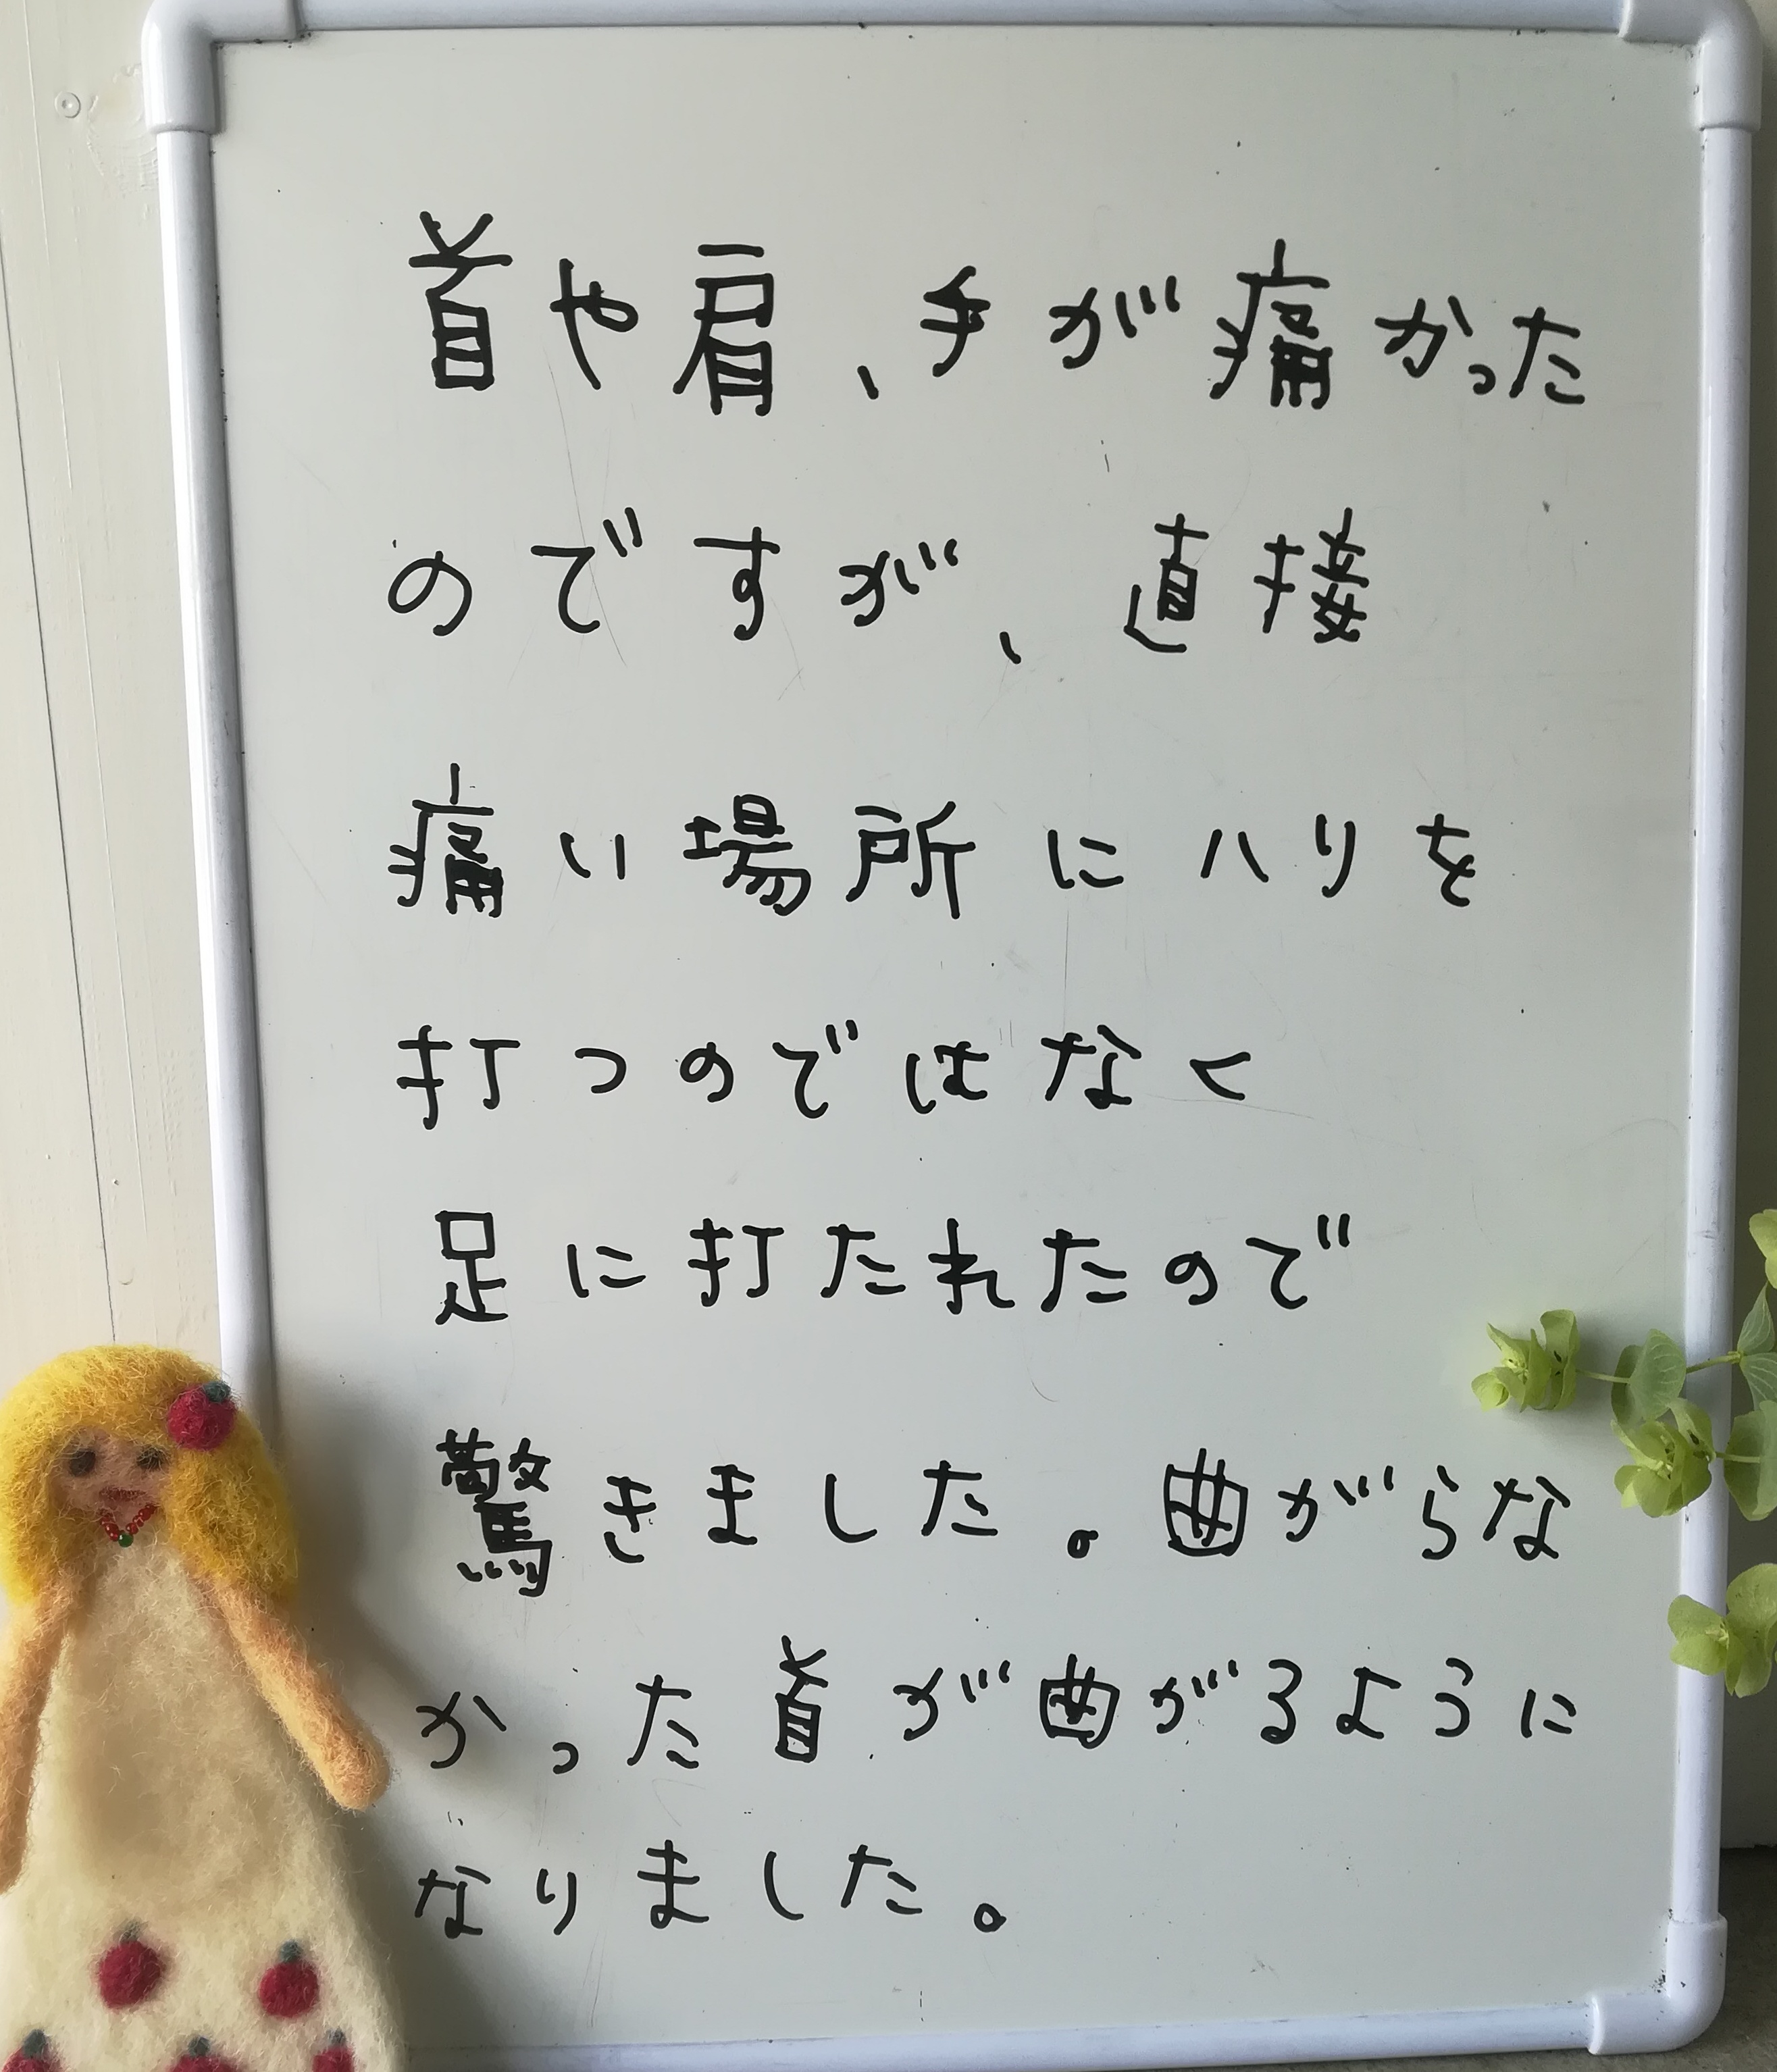 首や肩、手が痛かった
のですが、直接
痛い場所にハリを
打つのではなく
足に打たれたので
驚きました。曲がらな
かった首が曲がるように
なりました。